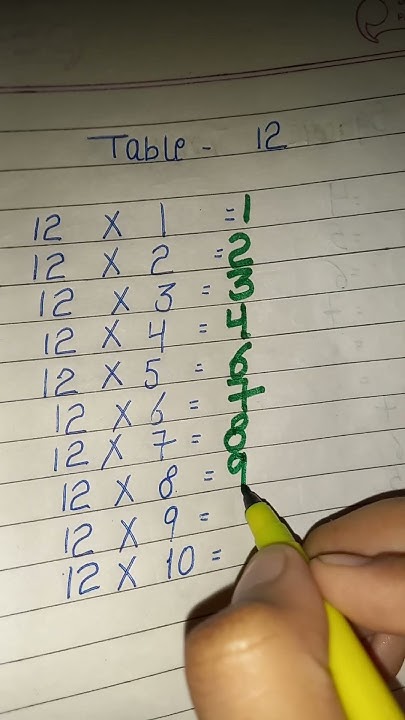 Table - 12
12 X 1 = 1
12 X 2 = 2
12 X 3 = 3
12 X 4 = 4
12 X 5 = 6
12 X 6 = 7
12 X 7 = 8
12 X 8 = 9
12 X 9 =
12 X 10 =